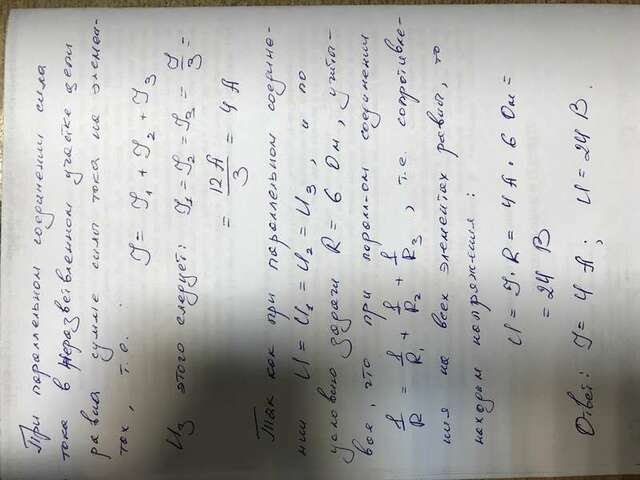 При параллельном соединении сила
тока в неразветвленном участке цепи
равна сумме силы тока на элемен-
тах, т.е.
I = I₁ + I₂ + I₃
Из этого следует: I₁ = I₂ = I₃ = I/3 =
= 12 А/3 = 4 А
Так как при параллельном соедине-
нии U = U₁ = U₂ = U₃, и по
условию задачи R = 6 Ом, учиты-
вая, что при парал-ом соединении
1/R = 1/R₁ + 1/R₂ + 1/R₃, т.е. сопротивле-
ния на всех элементах равны, то
находим напряжения:
U = I · R = 4 А · 6 Ом =
= 24 В
Ответ: I = 4 А; U = 24 В.